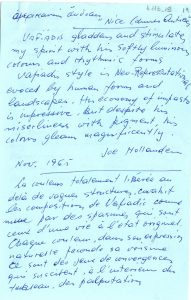 Nice
Vafiadis gladdens and stimulates
my spirit with his softly luminous
colours and rhythmic forms
Vafiadis style is Neo-Representational
evoked by human forms and
landscapes. His economy of impasto
is impressive. But despite his
miserliness with pigment, his
colors gleam magnificently.
Joe Hollander
Nov. 1965
La couleur totalement libérée au
delà de vagues structures, envahit
les compositions de Vafiadis comme
par des spasmes, qui sont
ceux d'une vie à l'état original.
Chaque couleur, dans son expression
naturelle, déborde sa
Ce sont des jeux de convergences
qui suscitent, à l'intérieur du
tableau, des palpitations